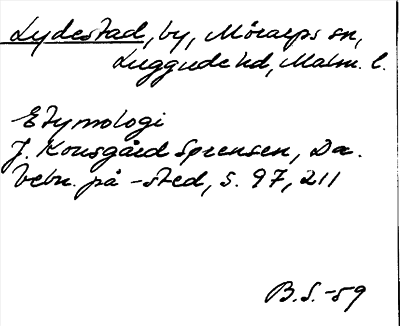 Lydestad, by, Mörarps sn,
Luggude hd, Malm. l.
Etymologi
J. Kousgård Sørensen, Da.
bebn. på -sted, s. 97, 211
B.S.-59